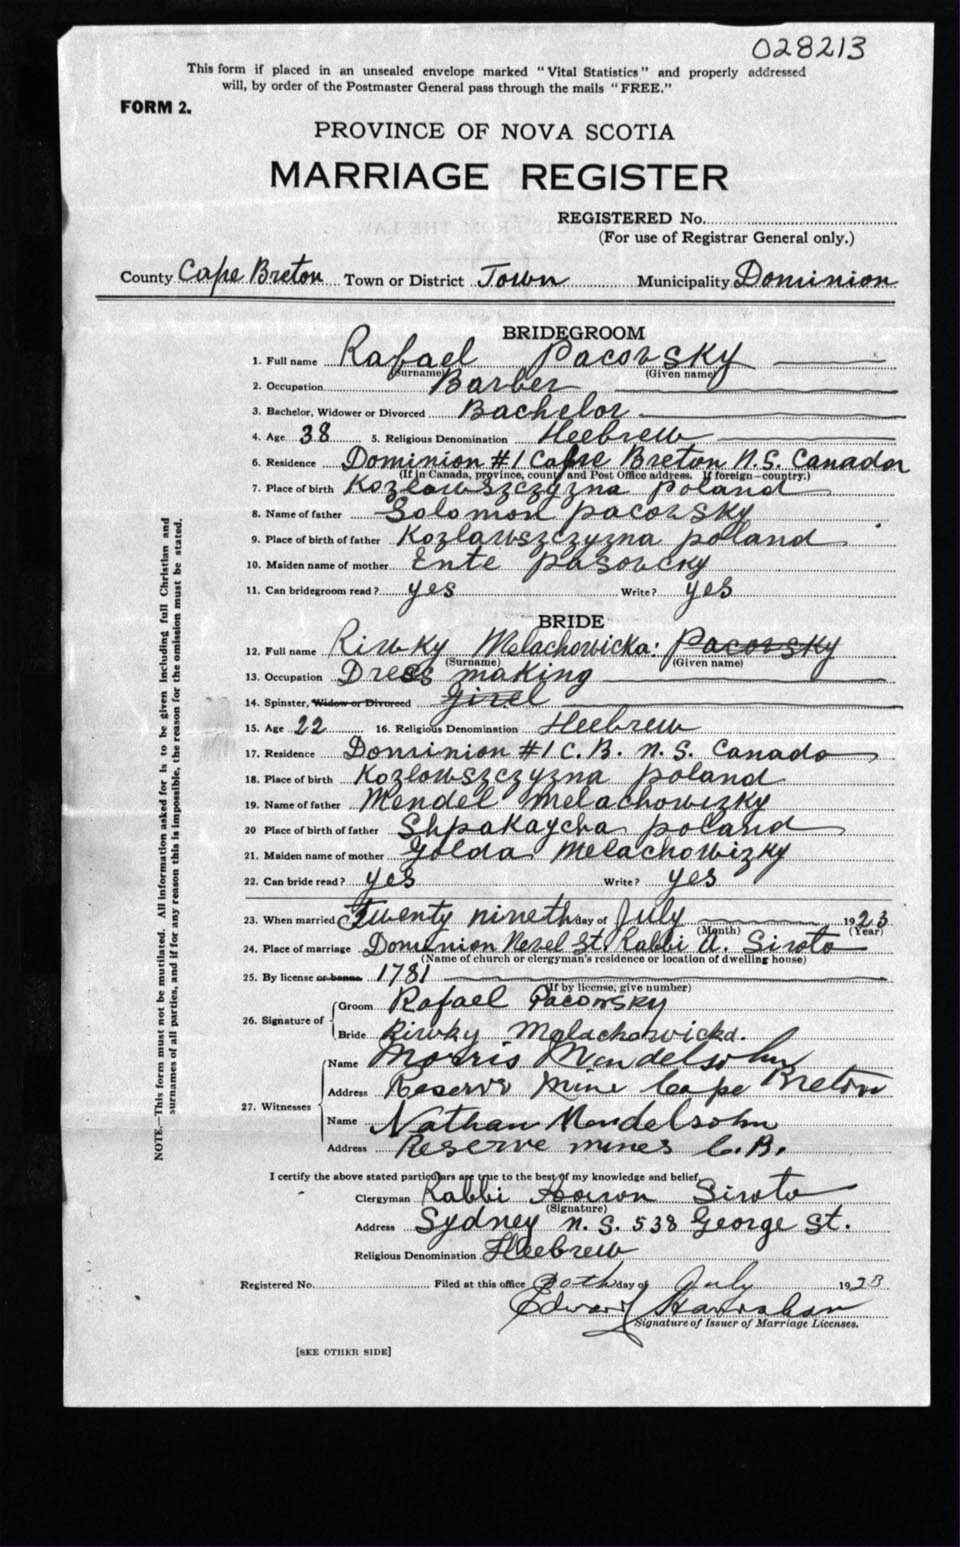 028213
This form if placed in an unsealed envelope marked "Vital Statistics" and properly addressed
will, by order of the Postmaster General pass through the mails "FREE."
FORM 2.
PROVINCE OF NOVA SCOTIA
MARRIAGE REGISTER
REGISTERED No.
(For use of Registrar General only.)
County Cape Breton Town or District Town Municipality Dominion
BRIDEGROOM
1. Full name Rafael Pacovsky
(Surname) (Given name)
2. Occupation Barber
3. Bachelor, Widower or Divorced Bachelor
4. Age 38 5. Religious Denomination Heebrew
6. Residence Dominion #1 Cape Breton N.S. Canada
(If in Canada, province, county and Post Office address. If foreign—country.)
7. Place of birth Kozlowszczyzna poland
8. Name of father Solomon pacovsky
9. Place of birth of father Kozlawszczyzna poland
10. Maiden name of mother Ente Pasovcky
11. Can bridegroom read? yes Write? yes
BRIDE
12. Full name Riwky Melachowicka: Pacovsky
(Surname) (Given name)
13. Occupation Dress making
14. Spinster, Widow or Divorced Girel
15. Age 22 16. Religious Denomination Heebrew
17. Residence Dominion #1 C.B. N.S. Canada
18. Place of birth Kozlowszczyzna poland
19. Name of father Mendel Melachowizky
20 Place of birth of father Shpakaycha poland
21. Maiden name of mother Golda Melachowizky
22. Can bride read? yes Write? yes
23. When married Twenty nineth day of July 1923
(Month) (Year)
24. Place of marriage Dominion Nezel St. Rabbi A. Siroto
(Name of church or clergyman's residence or location of dwelling house)
25. By license or banns 1781
(If by license, give number)
26. Signature of Groom Rafael Pacowsky
Bride Riwky Malachowicka.
27. Witnesses Name Morris Mendelsohn
Address Reserve Mine Cape Breton
Name Nathan Mendelsohn
Address Reserve mines C.B.
I certify the above stated particulars are true to the best of my knowledge and belief.
Clergyman Rabbi Aaron Siroto
(Signature)
Address Sydney N.S. 538 George St.
Religious Denomination Heebrew
Registered No. Filed at this office 30th day of July 1923
Edward Hanrahan
Signature of Issuer of Marriage Licenses.
[SEE OTHER SIDE]
NOTE.—This form must not be mutilated. All information asked for is to be given including full Christian and
surnames of all parties, and if for any reason this is impossible, the reason for the omission must be stated.